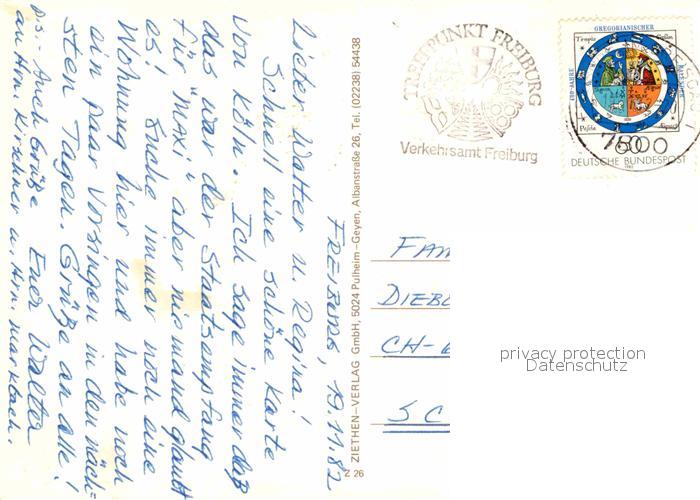 FREIBURG, 19.11.82
Lieber Walter u. Regina!
Schnell eine schöne Karte
von Köln. Ich sage immer daß
das war der Staatsempfang
für "MAXI" aber niemand glaubt
es! Suche immer noch eine
Wohnung hier und habe noch
ein paar Vorsingen in den näch=
sten Tagen. Grüße an alle!
Euer Walter
P.S. - Auch Grüße
an Hrn. Kirchner u. Hrn. Markbach.
ZIETHEN-VERLAG GmbH, 5024 Pulheim-Geyen, Albanstraße 26, Tel. (02238) 54438
Z 26
TREFFPUNKT FREIBURG
Verkehrsamt Freiburg
400 JAHRE
GREGORIANISCHER
DEUTSCHE BUNDESPOST
7800
FAM
DIEBO
CH-
SC
privacy protection
Datenschutz